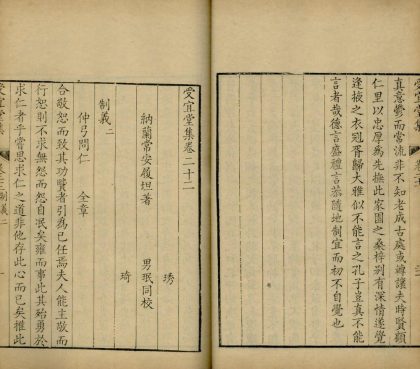 受宜堂集
真意鬱而當流非不知老成古處或讓夫時賢顧
仁里以忠厚為先撫此家園之桑梓別有深情遂覺
逢掖之衣冠胥歸大雅似不能言之孔子豈真不能
言者哉德言盛禮言恭隨地制宜而初不自覺也
受宜堂集卷二十二
琇
納蘭常安履坦著 男珉同校
琦
制義二
仲弓問仁 全章
合敬恕而致其功賢者引為已任焉夫人能主敬而
行恕則不求無怨而怨自泯矣雍而事此其殆勇於
求仁者乎嘗思求仁之道非他存此心而已矣推此
受宜堂集 制義二